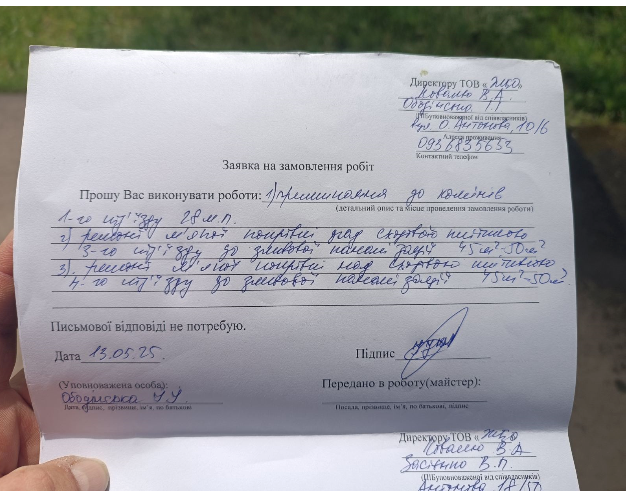 Директору ТОВ « ЖЕО»
Коваленко В.А.
(ПІБ уповноваженої від співвласників)
вул О. Антонова, 10/6
Адреса проживання
0936835633
Контактний телефон
Заявка на замовлення робіт
Прошу Вас виконувати роботи: 1) примикання до комінів
(детальний опис та місце проведення замовлення роботи)
1-го під'їзду 28 м.п.
2) ремонт м'якої покрівлі над сходовою клітиною
3-го під'їзду до зливової каналізації 45м²-50м²
3) ремонт м'якої покрівлі над сходовою клітиною
4-го під'їзду до зливової каналізації 45м²-50м²
Письмової відповіді не потребую.
Дата 13.05.25.
Підпис
(Уповноважена особа):
Передано в роботу(майстер):
Дата, підпис, прізвище, ім'я, по батькові
Посада, прізвище, ім'я, по батькові, підпис
Директору ТОВ « ЖЕО
В А
В.П.
(ПІБ уповноваженої від співвласників)
Антонова